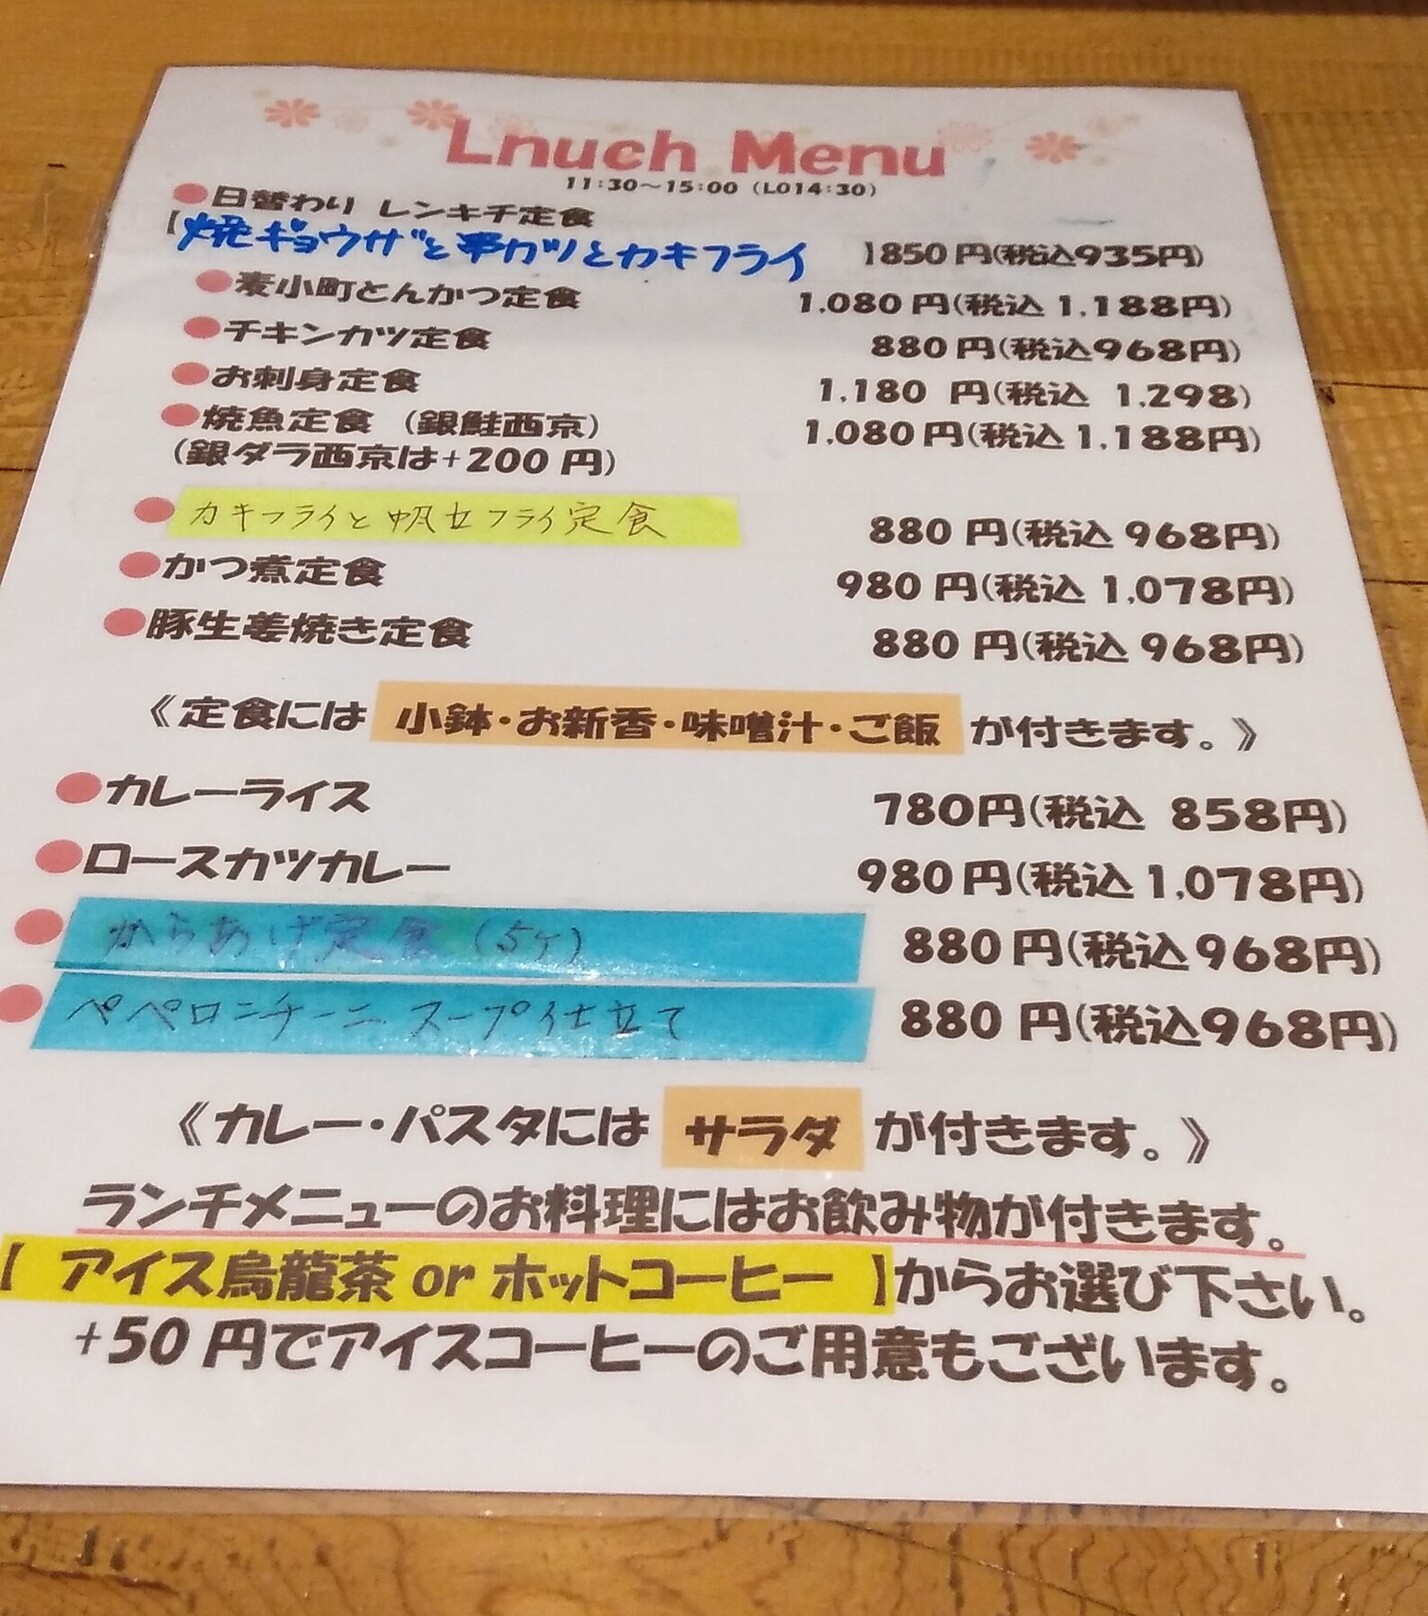 Lnuch Menu
11:30～15:00（LO14:30）
●日替わり レンキチ定食
【焼ギョウザと串カツとカキフライ 】850円(税込935円)
●麦小町とんかつ定食 1.080円(税込 1.188円)
●チキンカツ定食 880円(税込968円)
●お刺身定食 1.180 円(税込 1.298)
●焼魚定食 (銀鮭西京) 1.080円(税込 1.188円)
(銀ダラ西京は+200円)
●カキフライと帆立フライ定食 880円(税込 968円)
●かつ煮定食 980円(税込 1.078円)
●豚生姜焼き定食 880円(税込 968円)
《定食には 小鉢・お新香・味噌汁・ご飯 が付きます。》
●カレーライス 780円(税込 858円)
●ロースカツカレー 980円(税込 1,078円)
●からあげ定食 (5ケ) 880円(税込968円)
●ペペロニチーニ スープ仕立て 880円(税込968円)
《カレー・パスタには サラダ が付きます。》
ランチメニューのお料理にはお飲み物が付きます。
【 アイス烏龍茶 or ホットコーヒー 】からお選び下さい。
+50円でアイスコーヒーのご用意もございます。